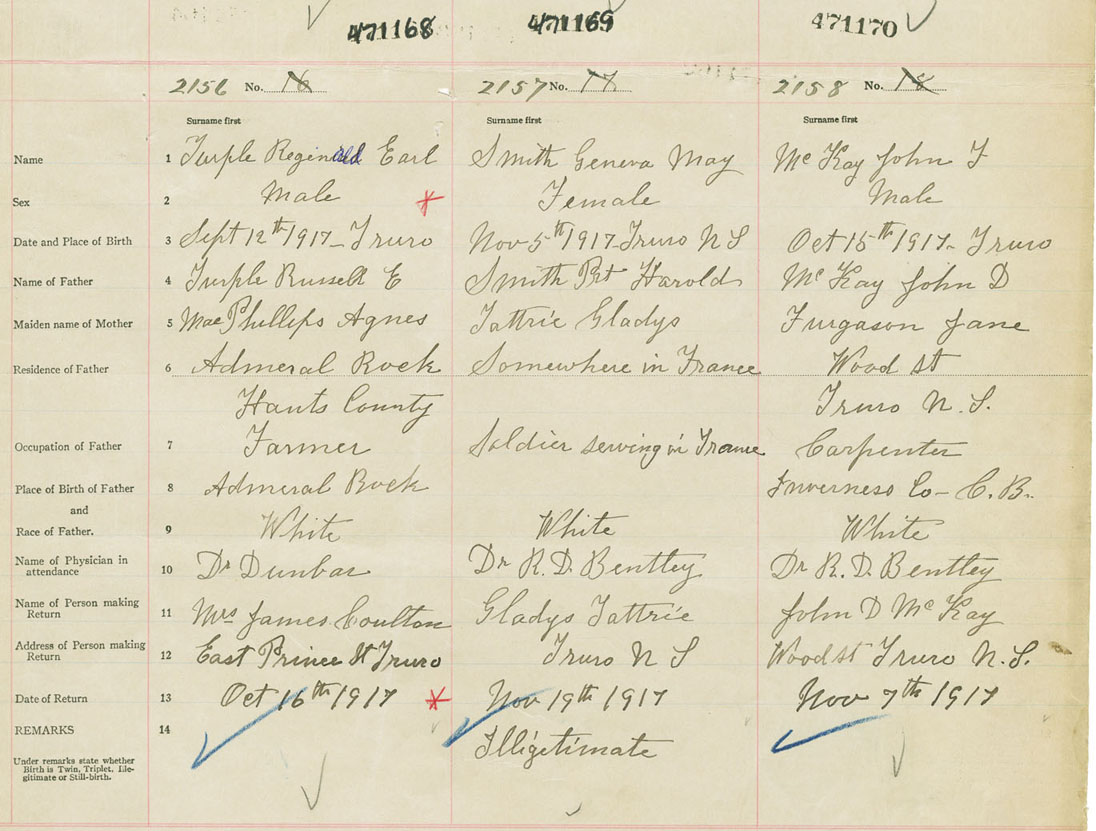 471168 471169 471170
2156 No. 16 2157 No. 17 2158 No. 18
Surname first Surname first Surname first
Name 1 Turple Reginald Earl Smith Geneva May McKay John F
Sex 2 Male Female Male
Date and Place of Birth 3 Sept 12th 1917 - Truro Nov 5th 1917 - Truro N S Oct 15th 1917 - Truro
Name of Father 4 Turple Russell E Smith Prt Harold McKay John D
Maiden name of Mother 5 MacPhillips Agnes Tattrie Gladys Furgason Jane
Residence of Father 6 Admiral Rock Somewhere in France Wood St
Hants County Truro N. S.
Occupation of Father 7 Farmer Soldier serving in France Carpenter
Place of Birth of Father 8 Admiral Rock Inverness Co - C. B.
and
Race of Father. 9 White White White
Name of Physician in
attendance 10 Dr Dunbar Dr R. D. Bentley Dr R. D. Bentley
Name of Person making
Return 11 Mrs James Coulton Gladys Tattrie John D McKay
Address of Person making
Return 12 East Prince St Truro Truro N S Wood st Truro N. S.
Date of Return 13 Oct 16th 1917 Nov 19th 1917 Nov 7th 1917
REMARKS 14 Illigetimate
Under remarks state whether
Birth is Twin, Triplet, Ille-
gitimate or Still-birth.